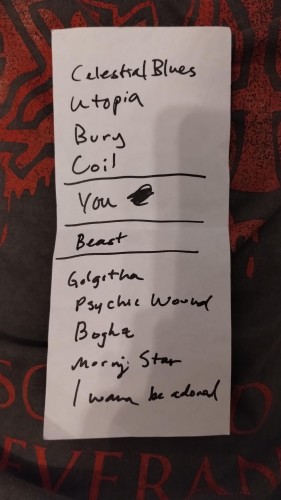 Celestial Blues
Utopia
Bury
Coil
You
Beast
Golgotha
Psychic Wound
Morning Star
I wanna be adored
EVERAN